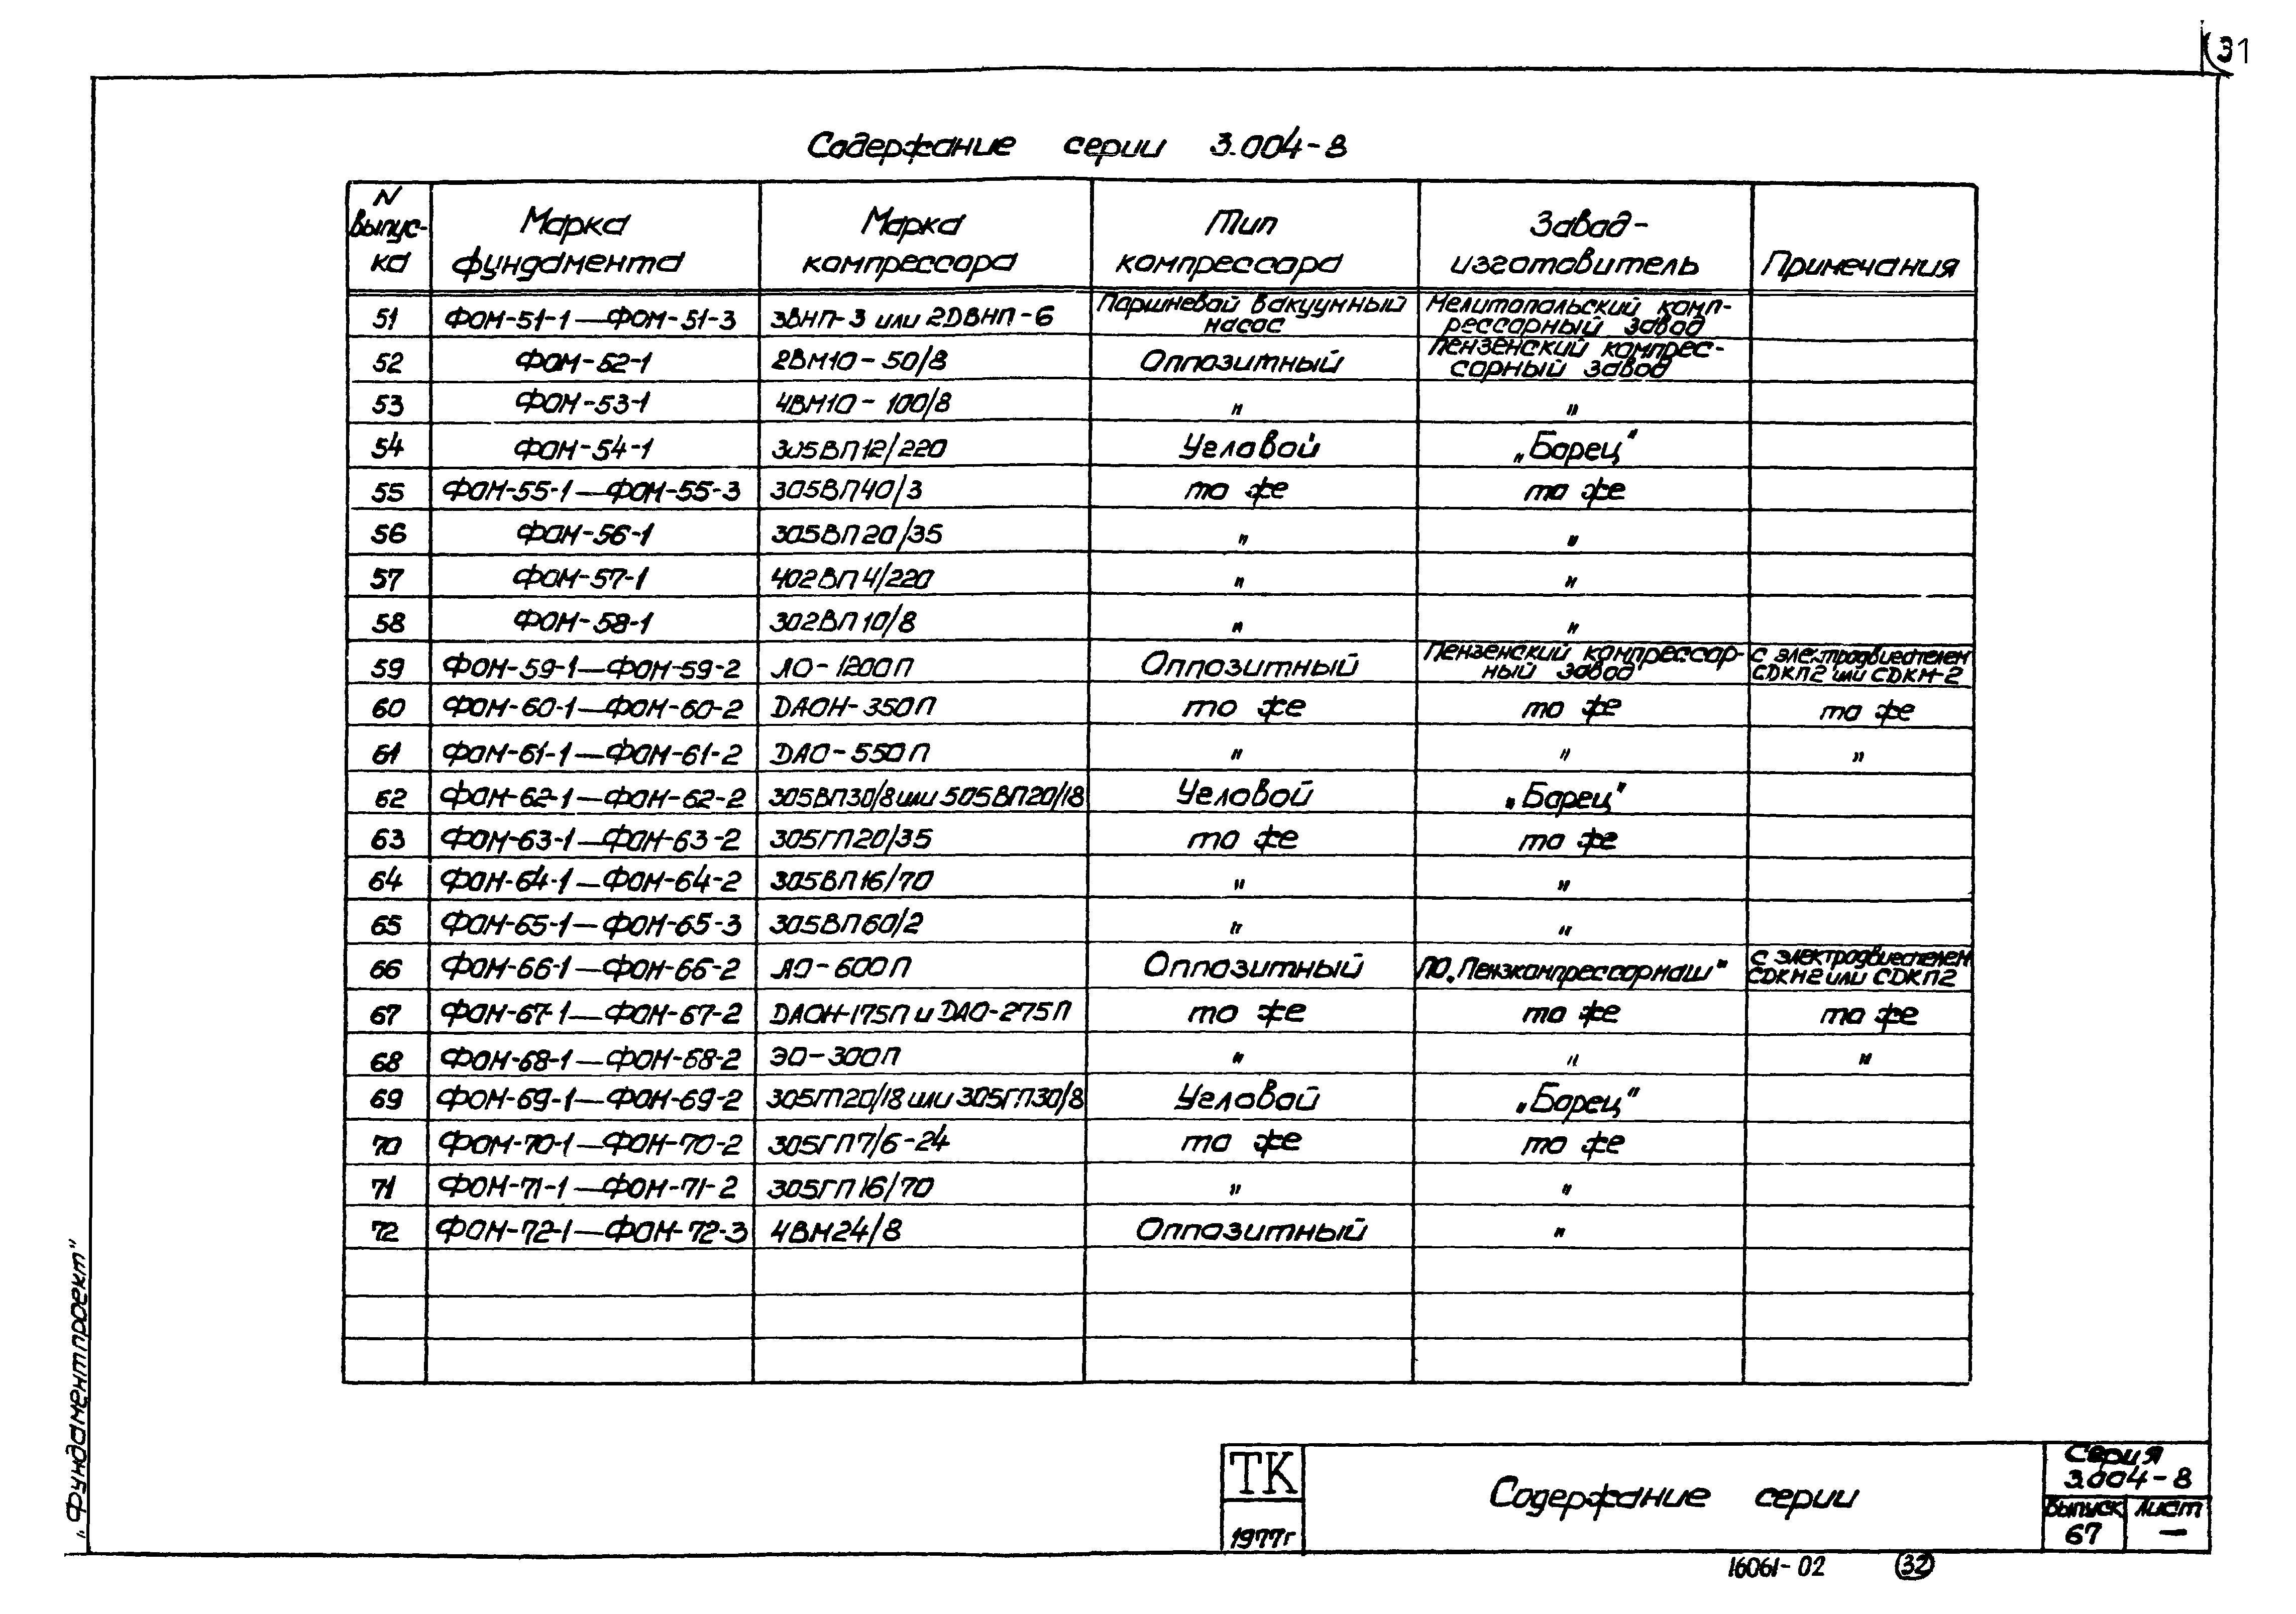 31
Содержание серии 3.004-8
N выпус-ка | Марка фундамента | Марка компрессора | Тип компрессора | Завод-изготовитель | Примечания
51 | ФОМ-51-1—ФОМ-51-3 | 3ВНП-3 или 2ДВНП-6 | Поршневой вакуумный насос | Мелитопольский комп-рессорный завод
52 | ФОМ-52-1 | 2ВМ10-50/8 | Оппозитный | Пензенский компрес-сорный завод
53 | ФОМ-53-1 | 4ВМ10-100/8 | " | "
54 | ФОМ-54-1 | 305ВП12/220 | Угловой | „Борец"
55 | ФОМ-55-1—ФОМ-55-3 | 305ВП40/3 | то же | то же
56 | ФОМ-56-1 | 305ВП20/35 | " | "
57 | ФОМ-57-1 | 402ВП4/220 | " | "
58 | ФОМ-58-1 | 302ВП10/8 | " | "
59 | ФОМ-59-1—ФОМ-59-2 | АО-1200П | Оппозитный | Пензенский компрессор-ный завод | с электродвигателем СДКП2 или СДКМ-2
60 | ФОМ-60-1—ФОМ-60-2 | ДАОН-350П | то же | то же | то же
61 | ФОМ-61-1—ФОМ-61-2 | ДАО-550П | " | " | "
62 | ФОМ-62-1—ФОМ-62-2 | 305ВП30/8 или 505ВП20/18 | Угловой | „Борец"
63 | ФОМ-63-1—ФОМ-63-2 | 305ГП20/35 | то же | то же
64 | ФОМ-64-1—ФОМ-64-2 | 305ВП16/70 | " | "
65 | ФОМ-65-1—ФОМ-65-3 | 305ВП60/2 | " | "
66 | ФОМ-66-1—ФОМ-66-2 | АО-600П | Оппозитный | ПО „Пензкомпрессормаш" | с электродвигателем СДКМ2 или СДКП2
67 | ФОМ-67-1—ФОМ-67-2 | ДАОН-175П и ДАО-275П | то же | то же | то же
68 | ФОМ-68-1—ФОМ-68-2 | ЭО-300П | " | " | "
69 | ФОМ-69-1—ФОМ-69-2 | 305ГП20/18 или 305ГП30/8 | Угловой | „Борец"
70 | ФОМ-70-1—ФОМ-70-2 | 305ГП7/6-24 | то же | то же
71 | ФОМ-71-1—ФОМ-71-2 | 305ГП16/70 | " | "
72 | ФОМ-72-1—ФОМ-72-3 | 4ВМ24/8 | Оппозитный | "
„Фундаментпроект"
ТК
1977г
Содержание серии
Серия
3.004-8
Выпуск Лист
67 —
16061-02 32